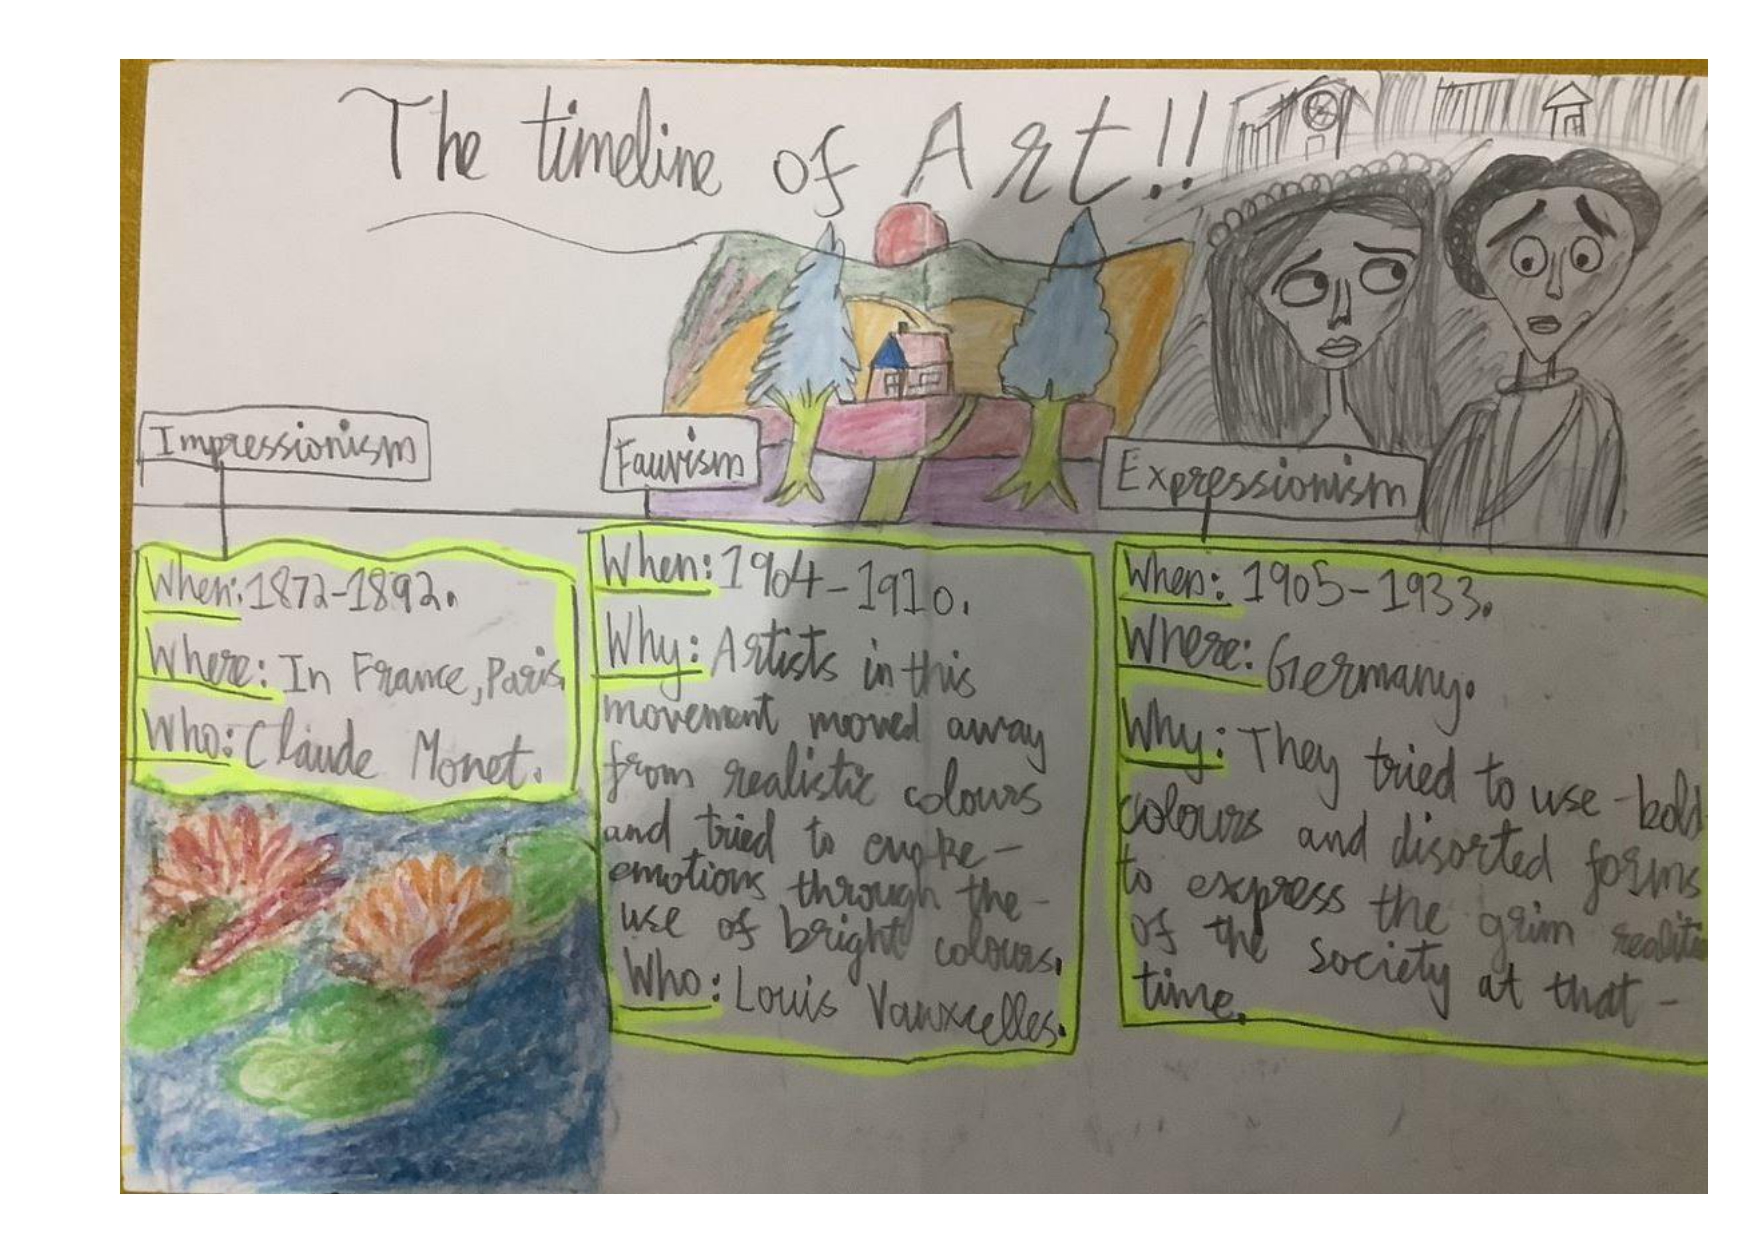 The timeline of Art!!
Impressionism
When: 1872-1892.
Where: In France, Paris.
Who: Claude Monet.
Fauvism
When: 1904-1910.
Why: Artists in this
movement moved away
from realistic colours
and tried to evoke-
emotions through the-
use of bright colours.
Who: Louis Vauxcelles.
Expressionism
When: 1905-1933.
Where: Germany.
Why: They tried to use-bold
colours and disorted forms
to express the grim
of the society at that-
time.